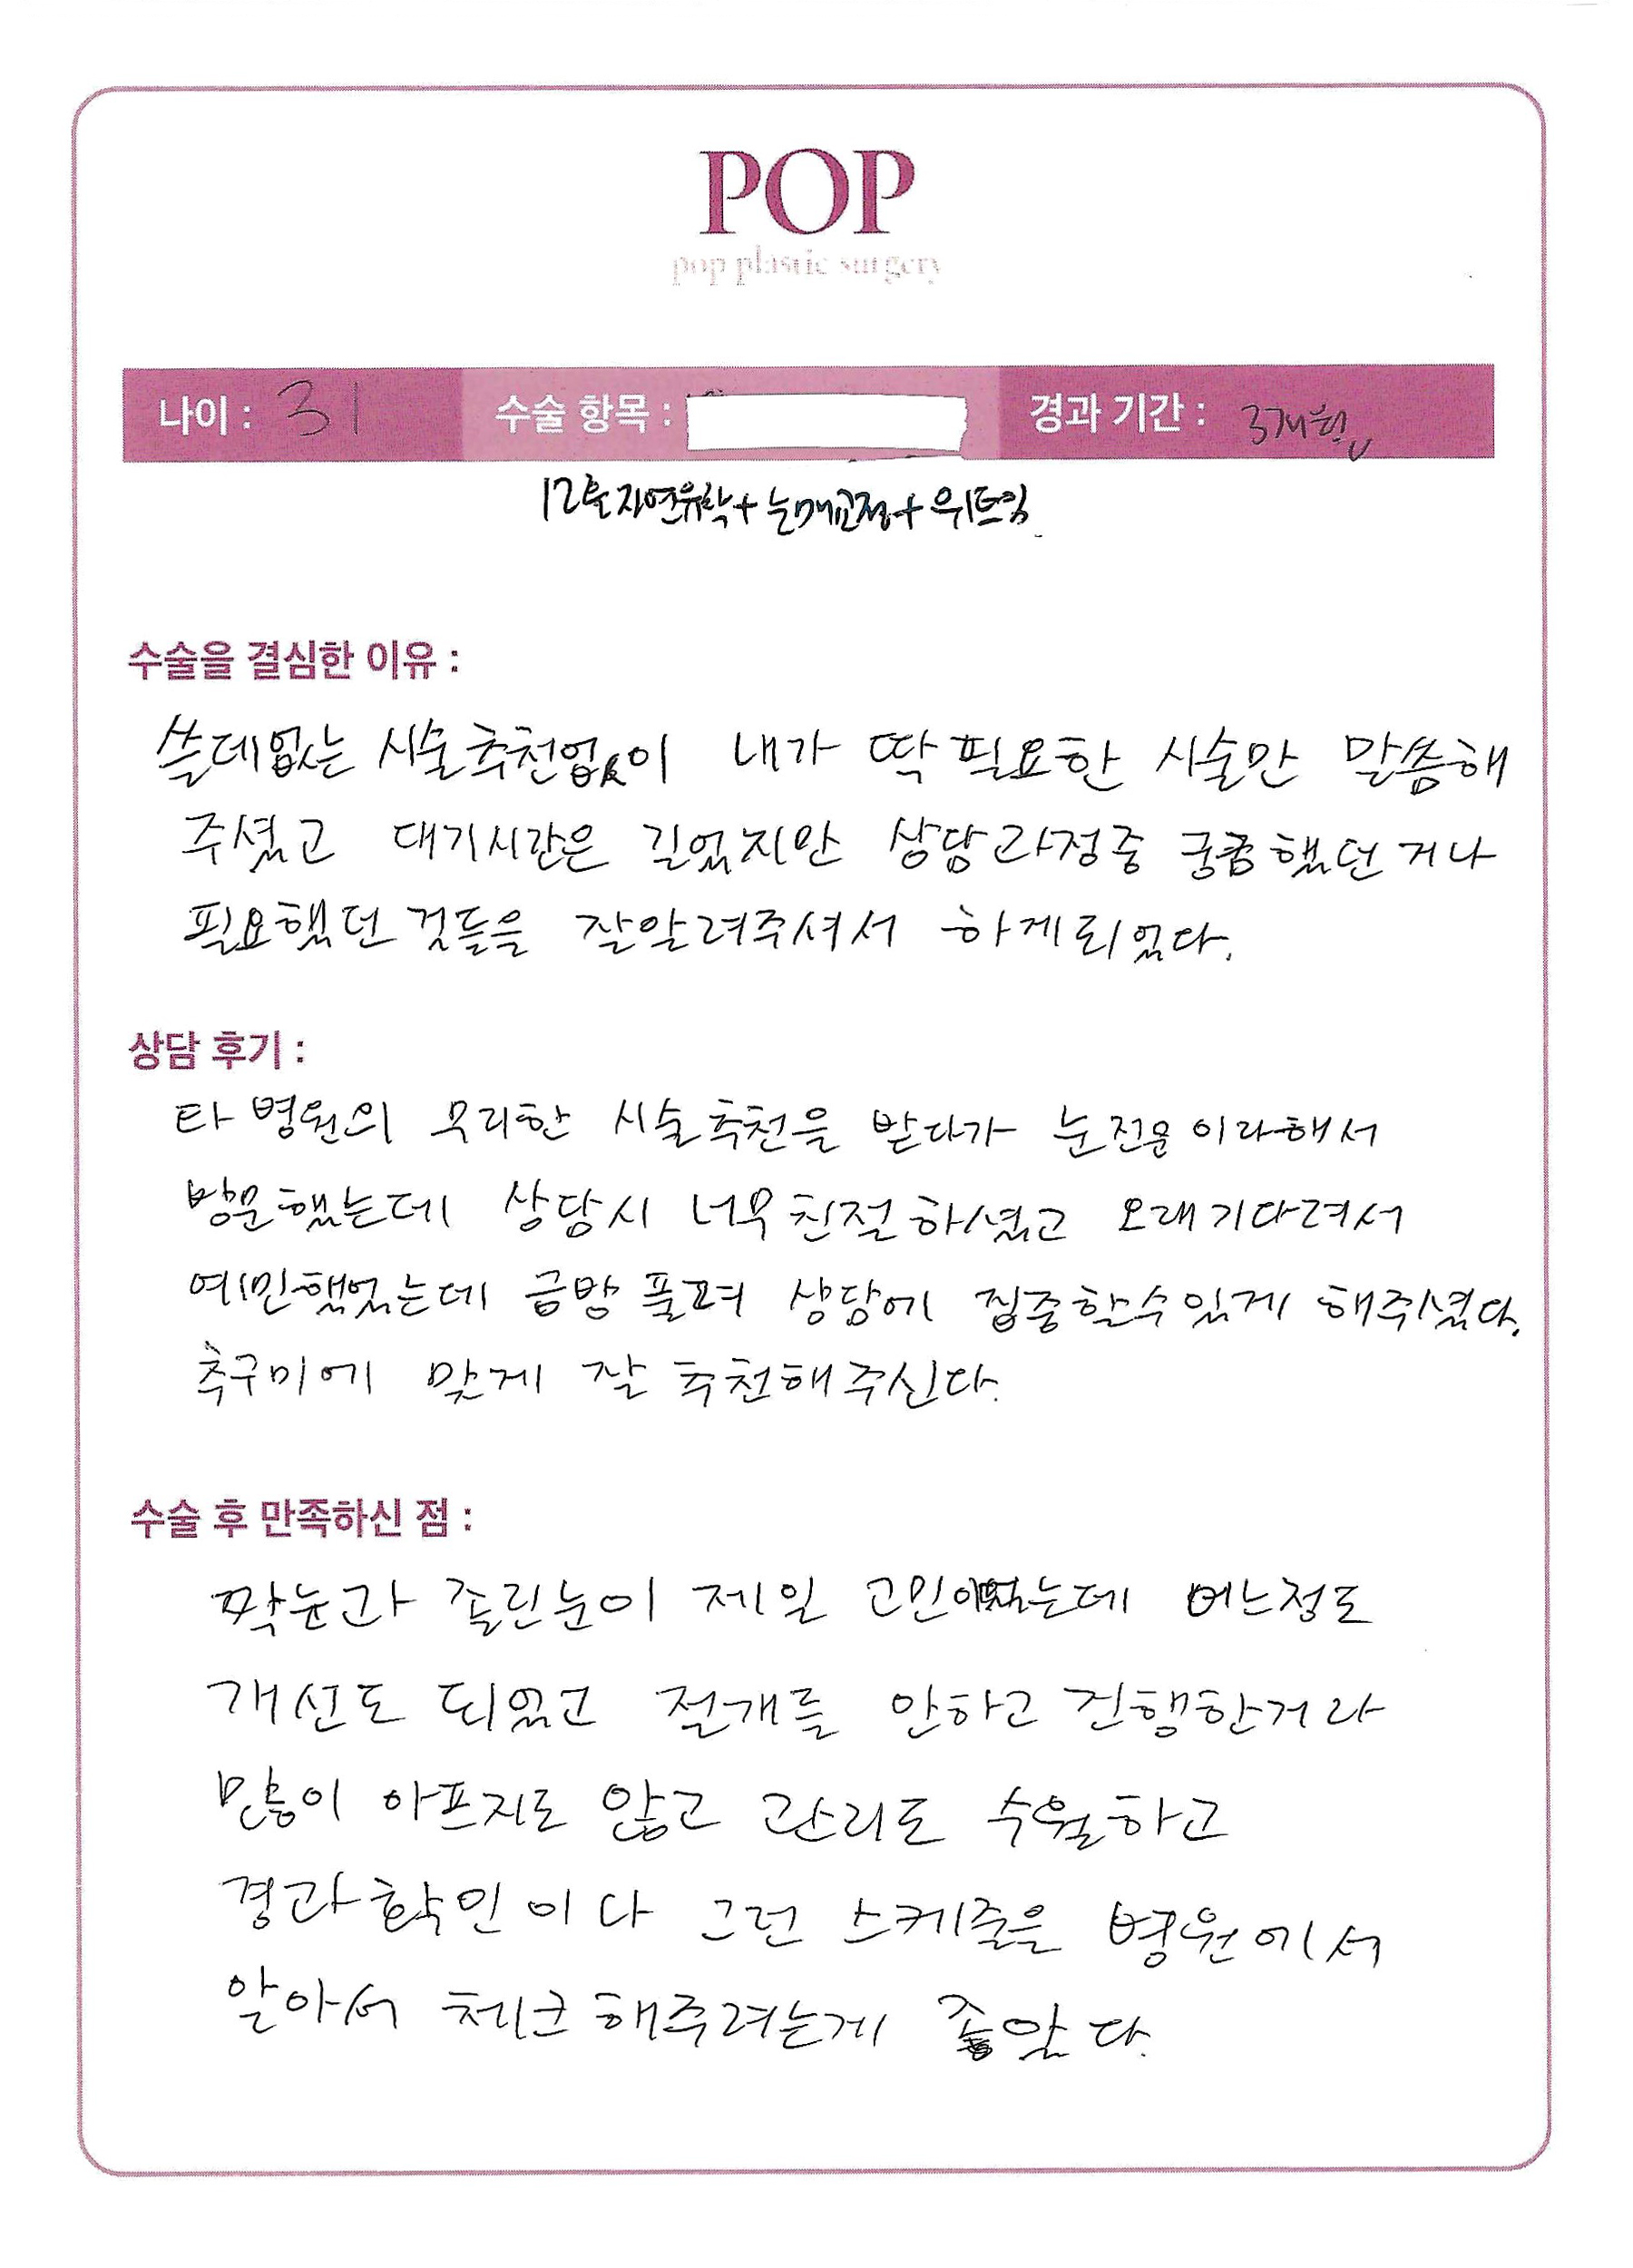 POP
pop plastic surgery
나이 : 31 수술 항목 : 경과 기간 : 3개월
12홀자연유착+눈매교정+위트임
수술을 결심한 이유 :
쓸데없는 시술추천없이 내가 딱 필요한 시술만 말씀해
주셨고 대기시간은 길었지만 상담과정중 궁금했던거나
필요했던 것들을 잘알려주셔서 하게되었다.
상담 후기 :
타 병원의 무리한 시술추천을 받다가 눈전문이라해서
방문했는데 상담시 너무 친절하셨고 오래기다려서
예민했었는데 금방 풀려 상담에 집중할수있게 해주셨다.
추구미에 맞게 잘 추천해주신다.
수술 후 만족하신 점 :
짝눈과 졸린눈이 제일 고민이었는데 어느정도
개선도 되었고 절개를 안하고 진행한거라
많이 아프지도 않고 관리도 수월하고
경과확인이다 그런 스케줄을 병원에서
알아서 체크해주려는게 좋았다.